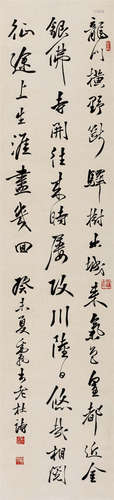 龍門橫野斷驛樹出城來氣色皇都近金
銀佛寺開往來時屢改川陸日悠哉相閱
征途上生涯盡幾回 癸未夏 書老杜詩